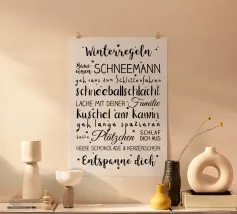 Winterregeln
Baue einen SCHNEEMANN
geh raus zum Schlittenfahren
schneeballschlacht
LACHE MIT DEINER Familie
Kuschel am Kamin
geh lange spazieren
Plätzchen SCHLAF DICH AUS
HEIßE SCHOKOLADE & HERZENSCHEIN
Entspanne dich